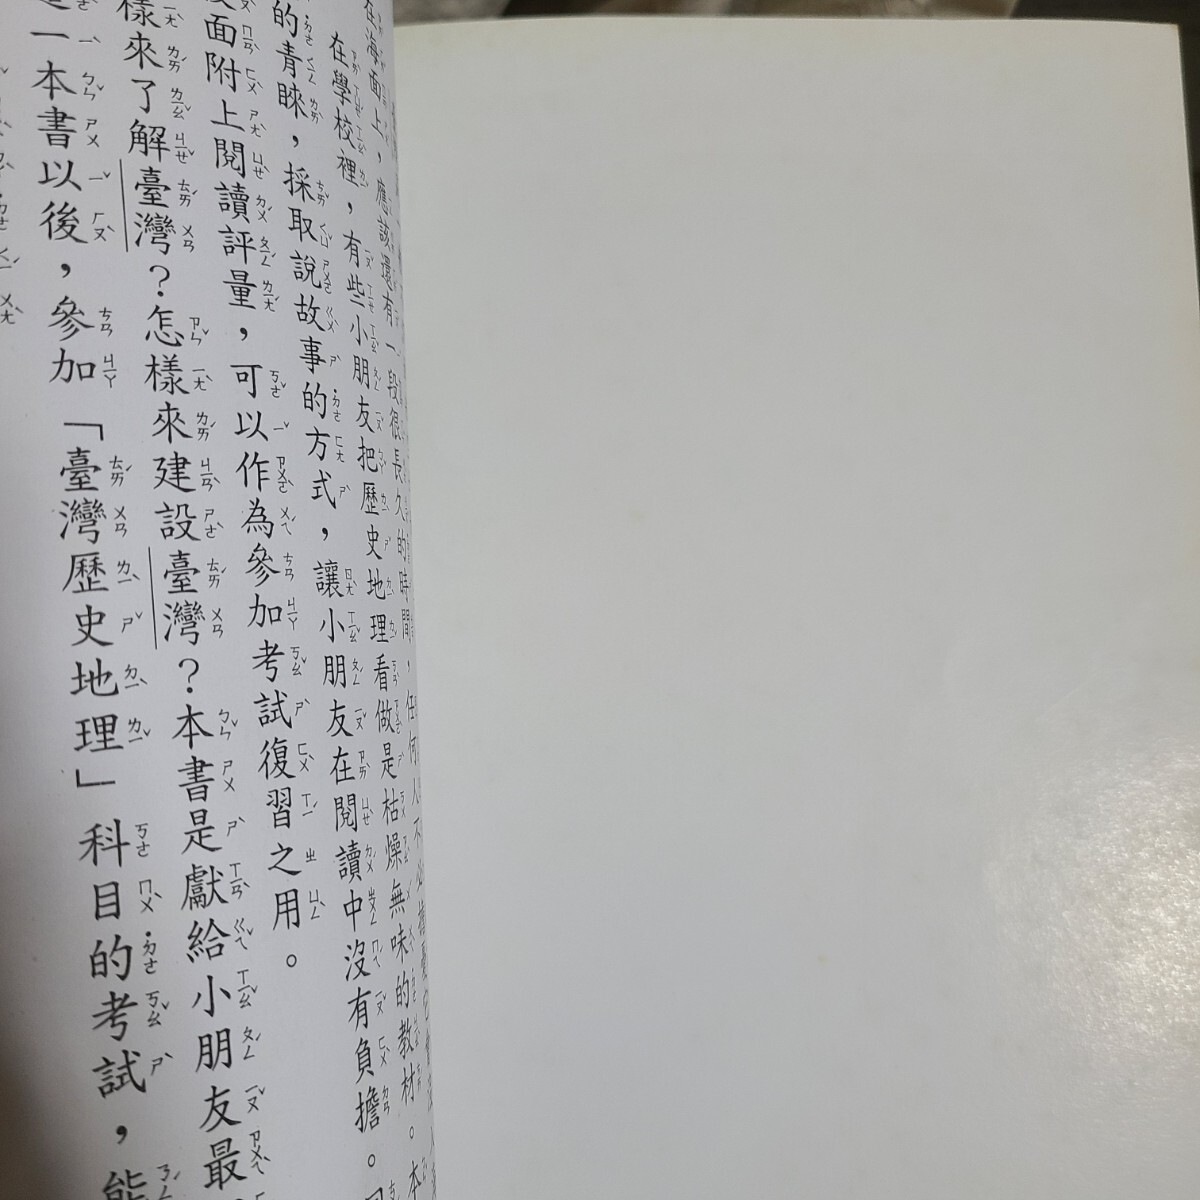 在海面上，應該還有一段很長久的時間，任何人不必
在學校裡，有些小朋友把歷史地理看做是枯燥無味的教材。本
的青睞，採取說故事的方式，讓小朋友在閱讀中沒有負擔。
面附上閱讀評量，可以作為參加考試復習之用。
樣來了解臺灣？怎樣來建設臺灣？本書是獻給小朋友最
一本書以後，參加「臺灣歷史地理」科目的考試，能